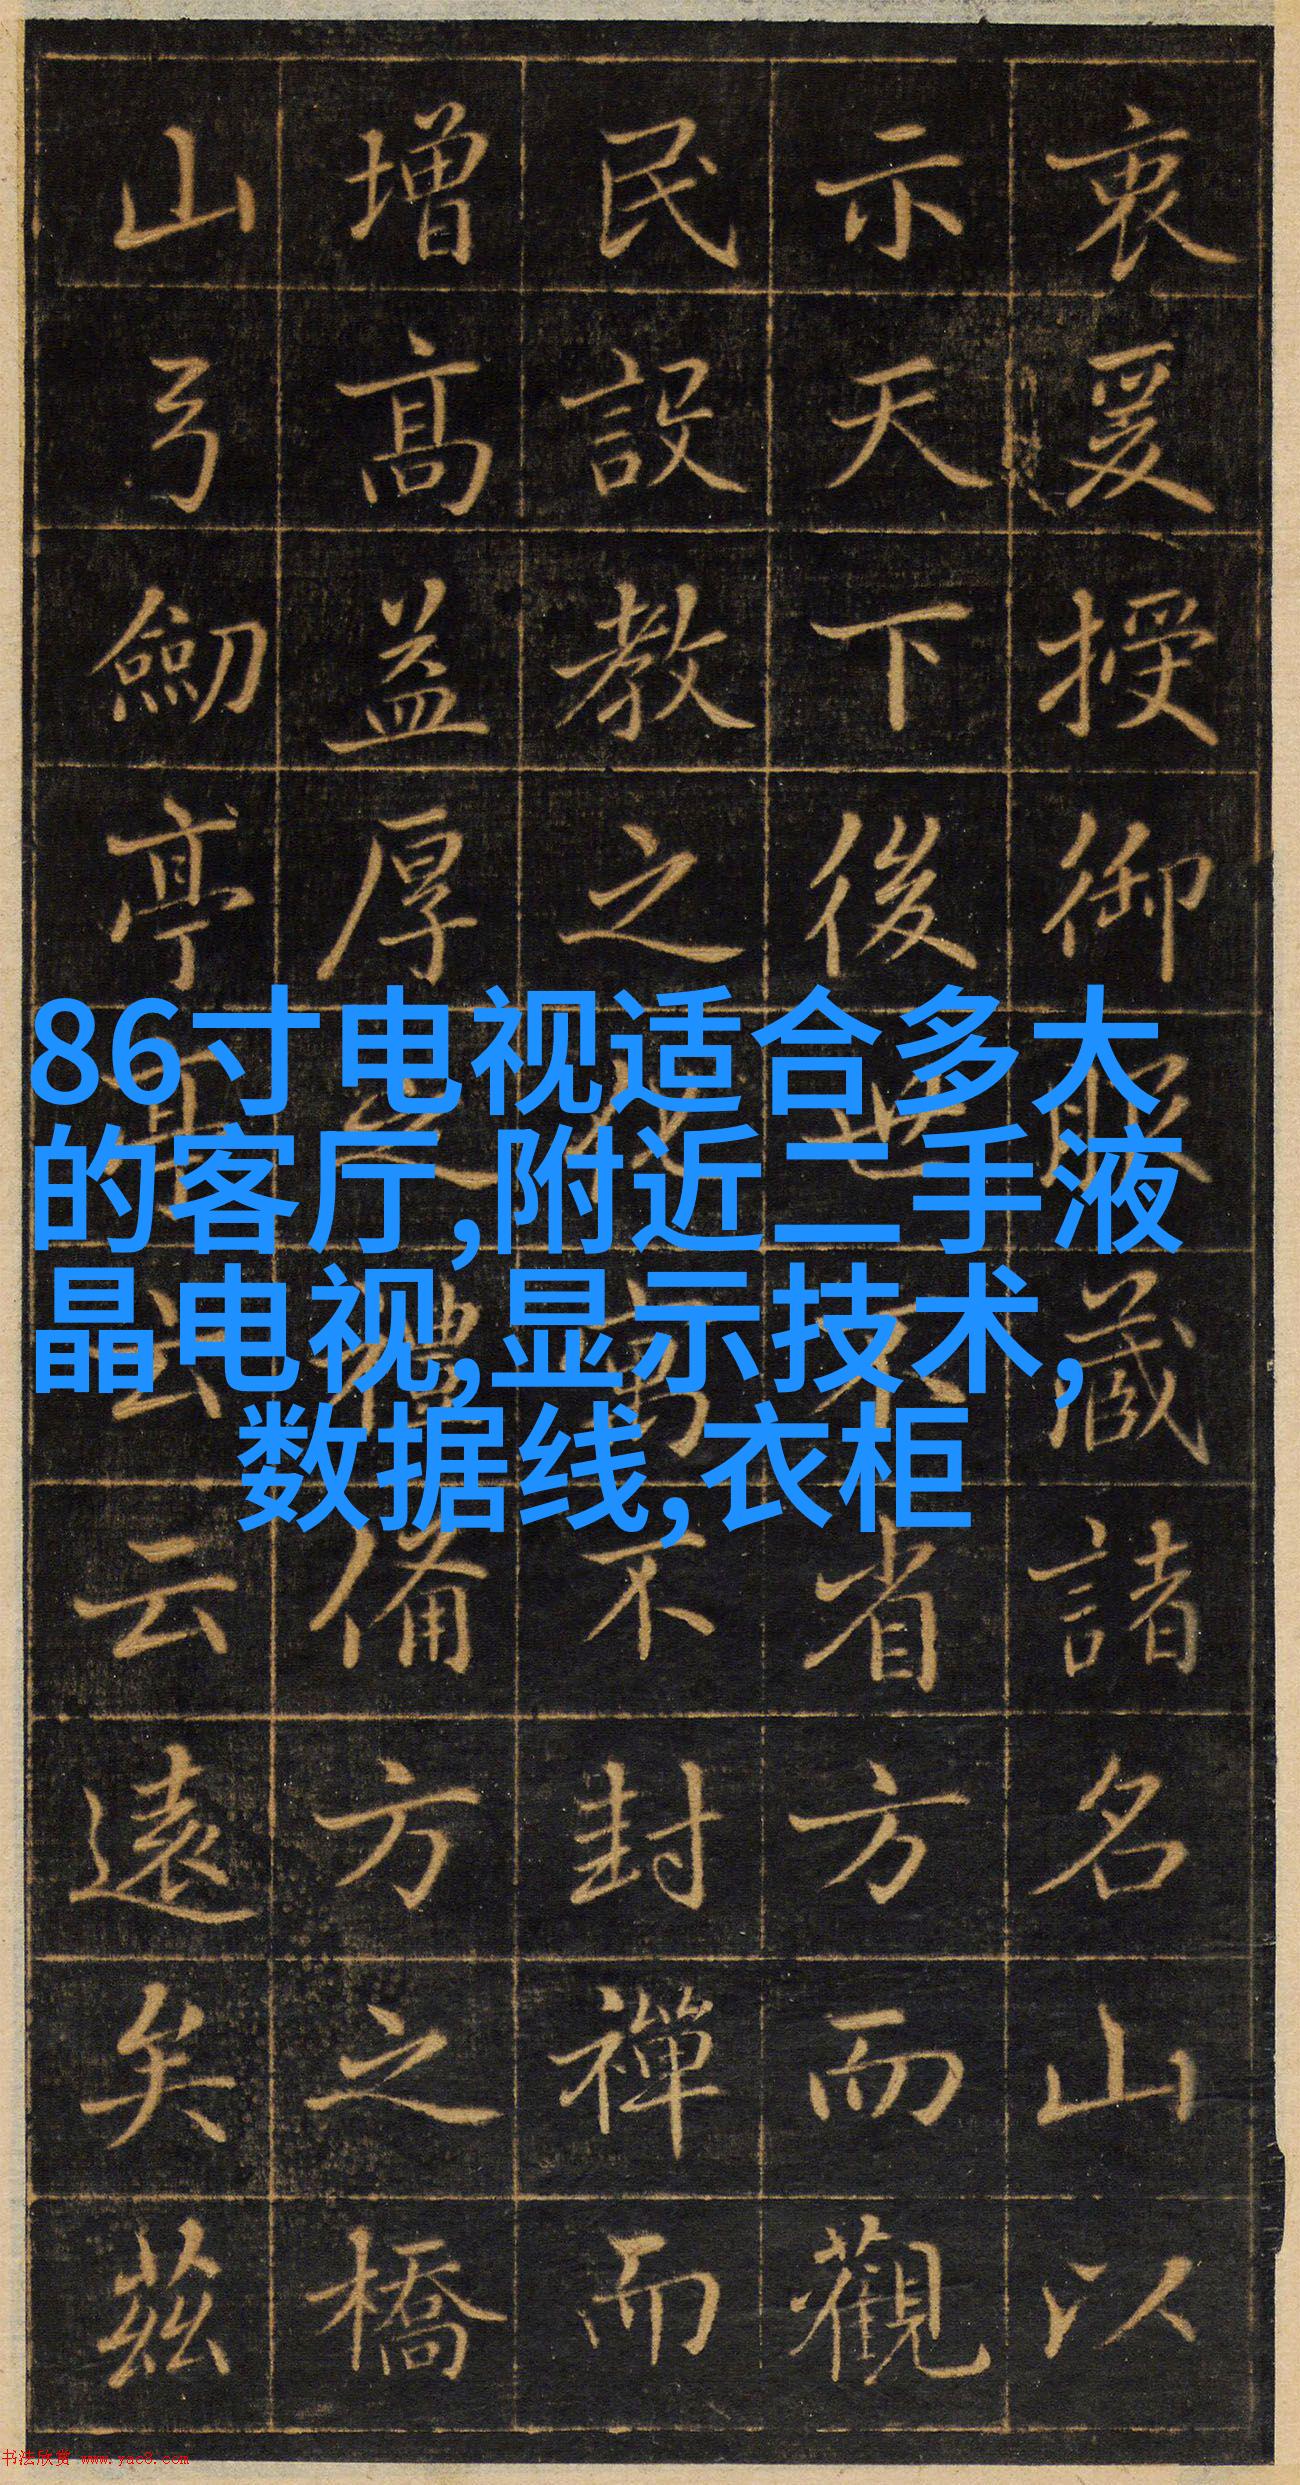 衷爰授御服藏諸名山以
示天下後世省方而觀
民設教之不封禪而
增高益厚之禮備方之橋
山弓劒亭亭云云遠矣茲
86寸电视适合多大
的客厅,附近二手液
晶电视,显示技术,
数据线,衣柜
书法欣赏 www.yac8.com